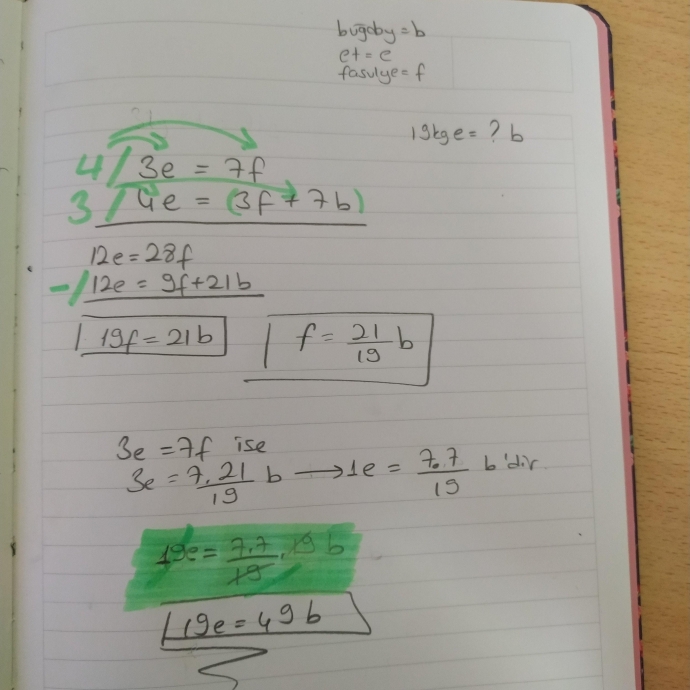 buğday = b
et = e
fasulye = f
19kg e = ? b
4/ 3e = 7f
3/ 4e = (3f + 7b)
12e = 28f
-/ 12e = 9f + 21b
19f = 21b
f = 21/19 b
3e = 7f ise
3e = 7.21/19 b → 1e = 7.7/19 b'dir
19e = 7.7/19 . 19 b
19e = 49 b